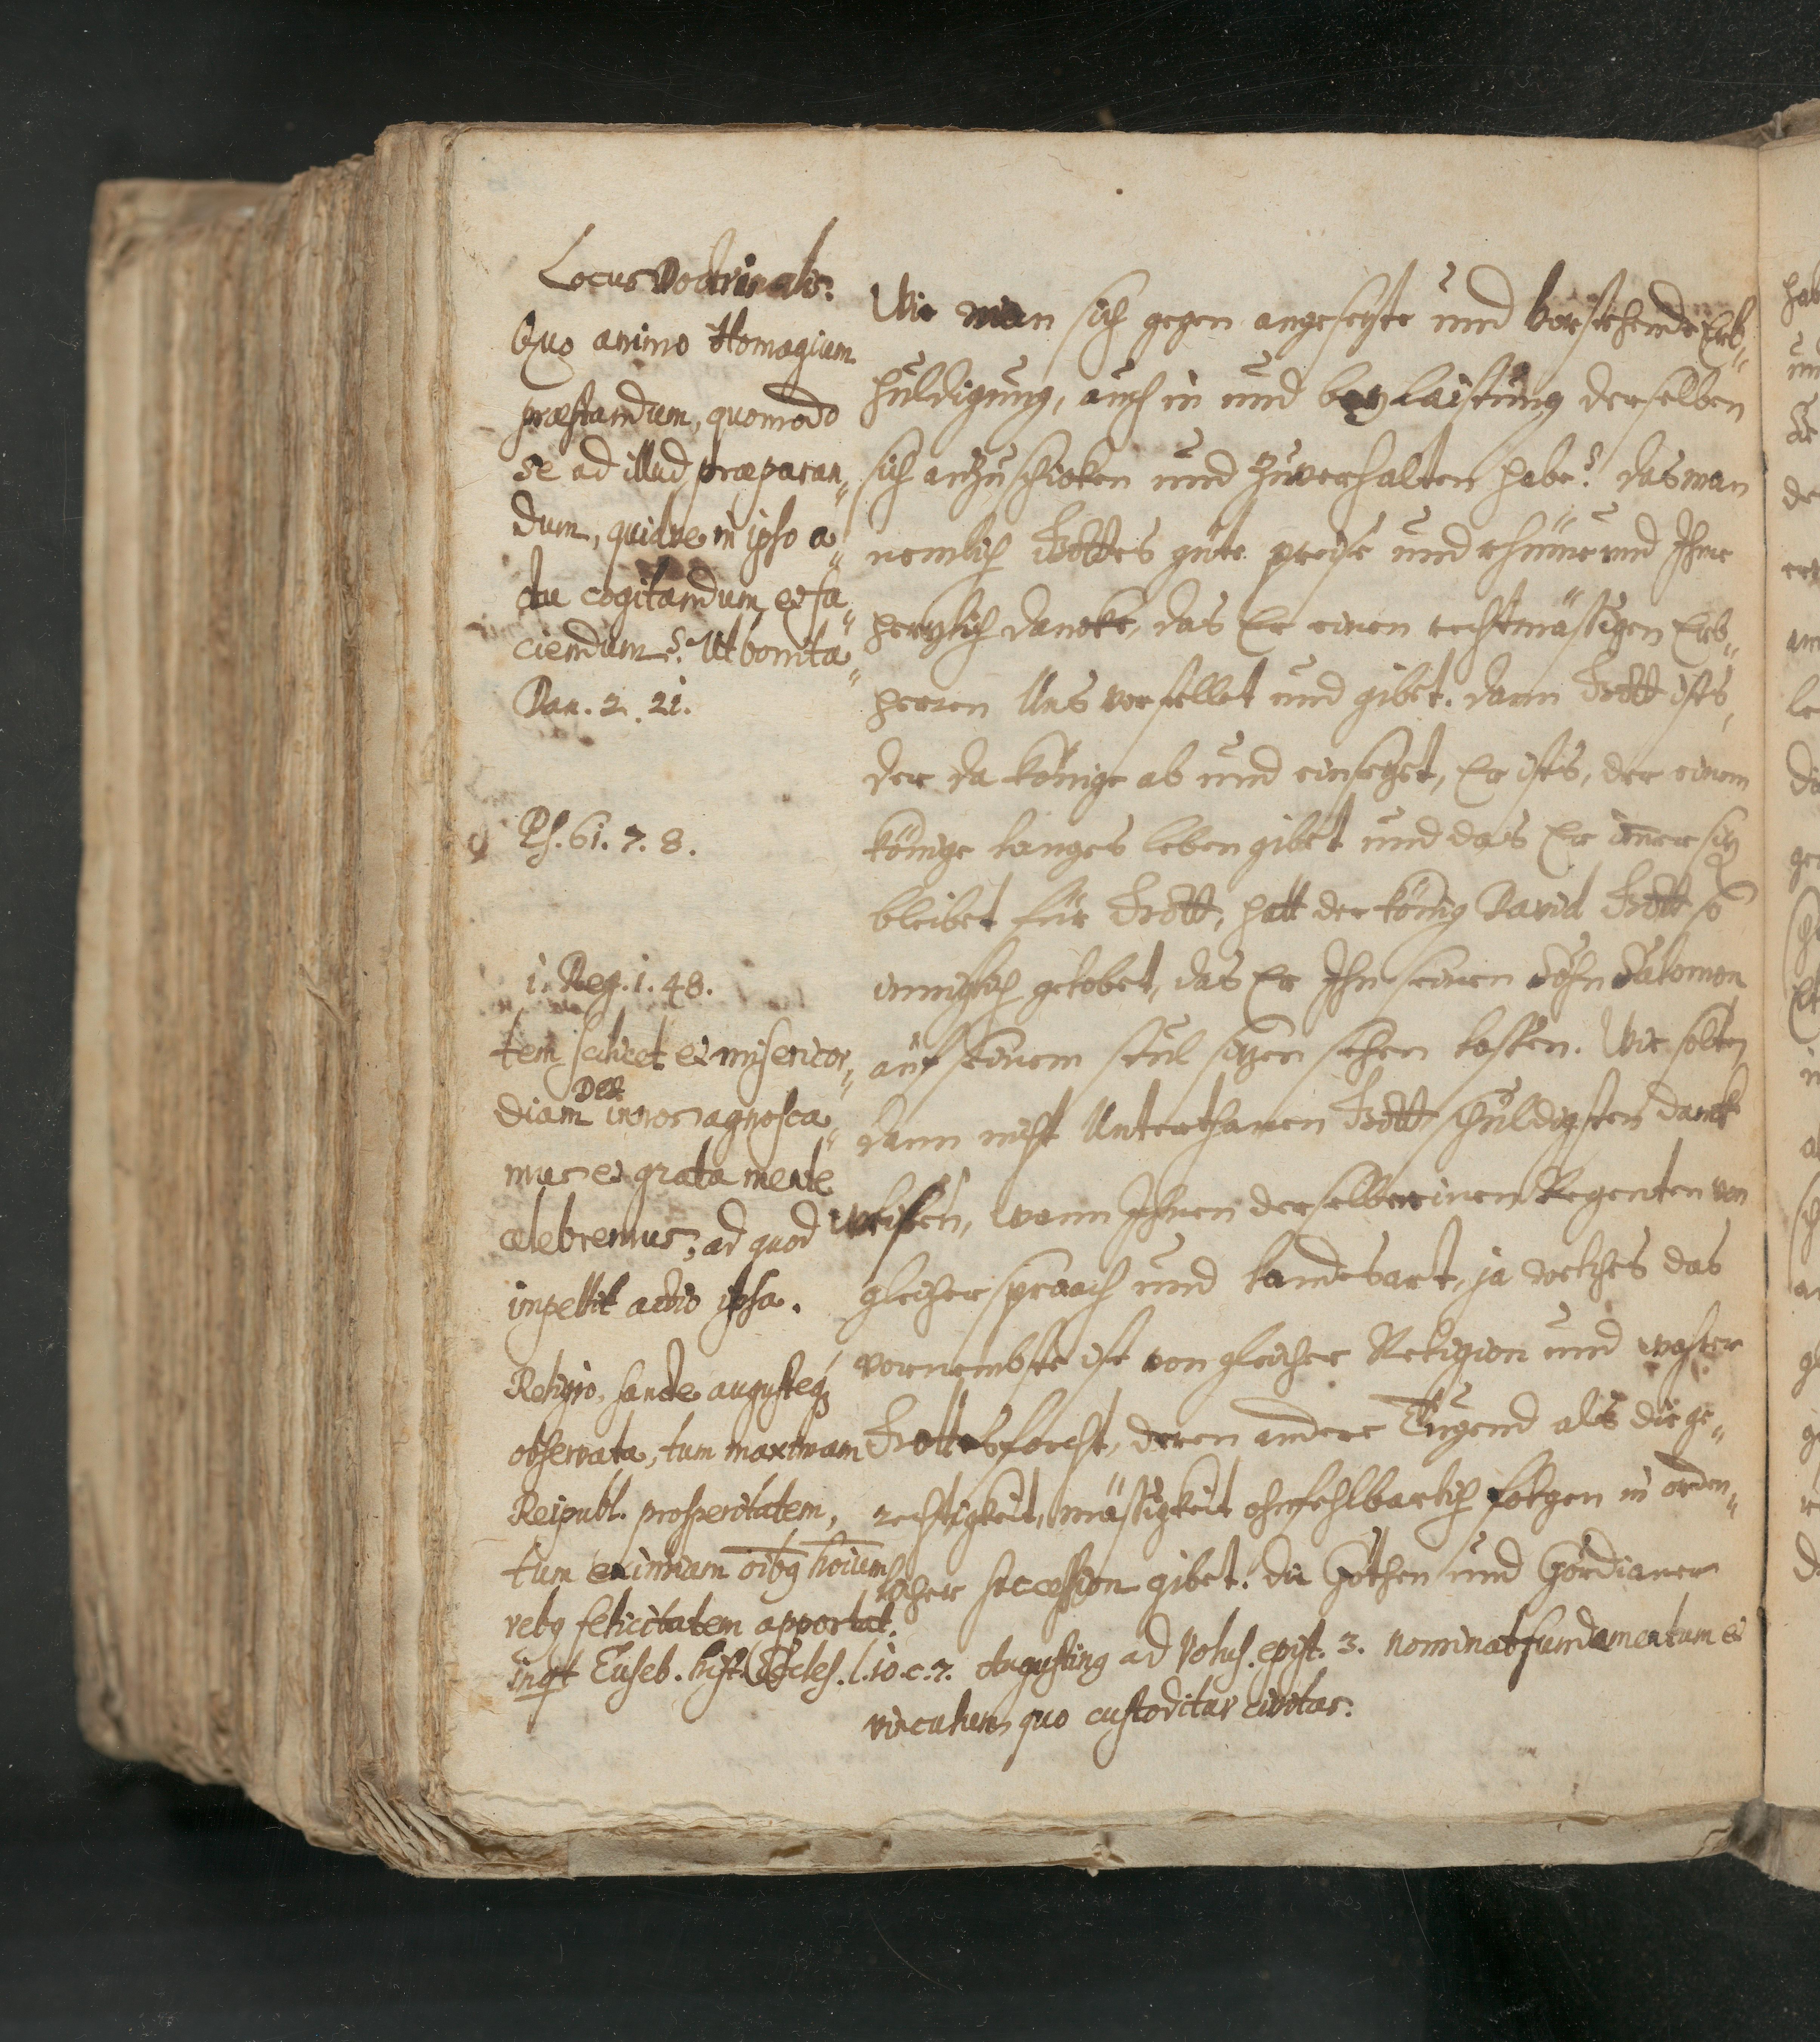 Locus Doctrinalis.
Quo animo Homagium
præstandum, quomodo
se ad illud præparan„
dum, quidve in ipso a„
ctu cogitandum et fa„
ciendum? Ut bonita„
Dan. 2. 21.
Ps. 61. 7. 8.
1. Reg. 1. 48.
tem scilicet et misericor„
diam Dei in nos agnosca„
mus et grata mente
celebremus, ad quod
impellit actio ipsa.
Religio, sancte augusteq;
observata, tum maximam
Reipubl. prosperitatem,
tum eximiam oibq hoium
rebq felicitatem apportat.
inqt Euseb. hist. Eccles. l. 10. c. 7. Augustinq ad Volus. epist. 3. nominat fundamentum et
vinculum quo custoditur civitas.
Wie man sich gegen angesezte und vorstehende Erb„
huldigung, auch in und bey laistung derselben
sich anzuschicken und zuverhalten habe? das man
nemlich Gottes güte preise und rhüme und Ihme
herzlich dancke, das Er einen rechtmässigen Erb„
herren Uns vorstellet und gibet. dann Gott ists,
der da könige ab und einsezet, Er ists, der einem
könige langes leben gibet und das Er immer sizen
bleibet für Gott, hatt der könig David Gott so
inniglich gelobet, das Er Ihn seinen Sohn Salomon
auf seinem stul sizen sehen lassen. Wie solten
dann nicht Unterthanen Gott schuldigsten danck
wissen, wann Ihnen derselbe einen Regenten von
gleicher spraach und landesart, ja welches das
vornembste ist von gleicher Religion und wahrer
Gottesforcht, deren andere Tugend als die ge„
rechtigkeit, mässigkeit ohnfehlbarlich folgen in orden„
licher succession gibet. Die Gothen und Gordianer